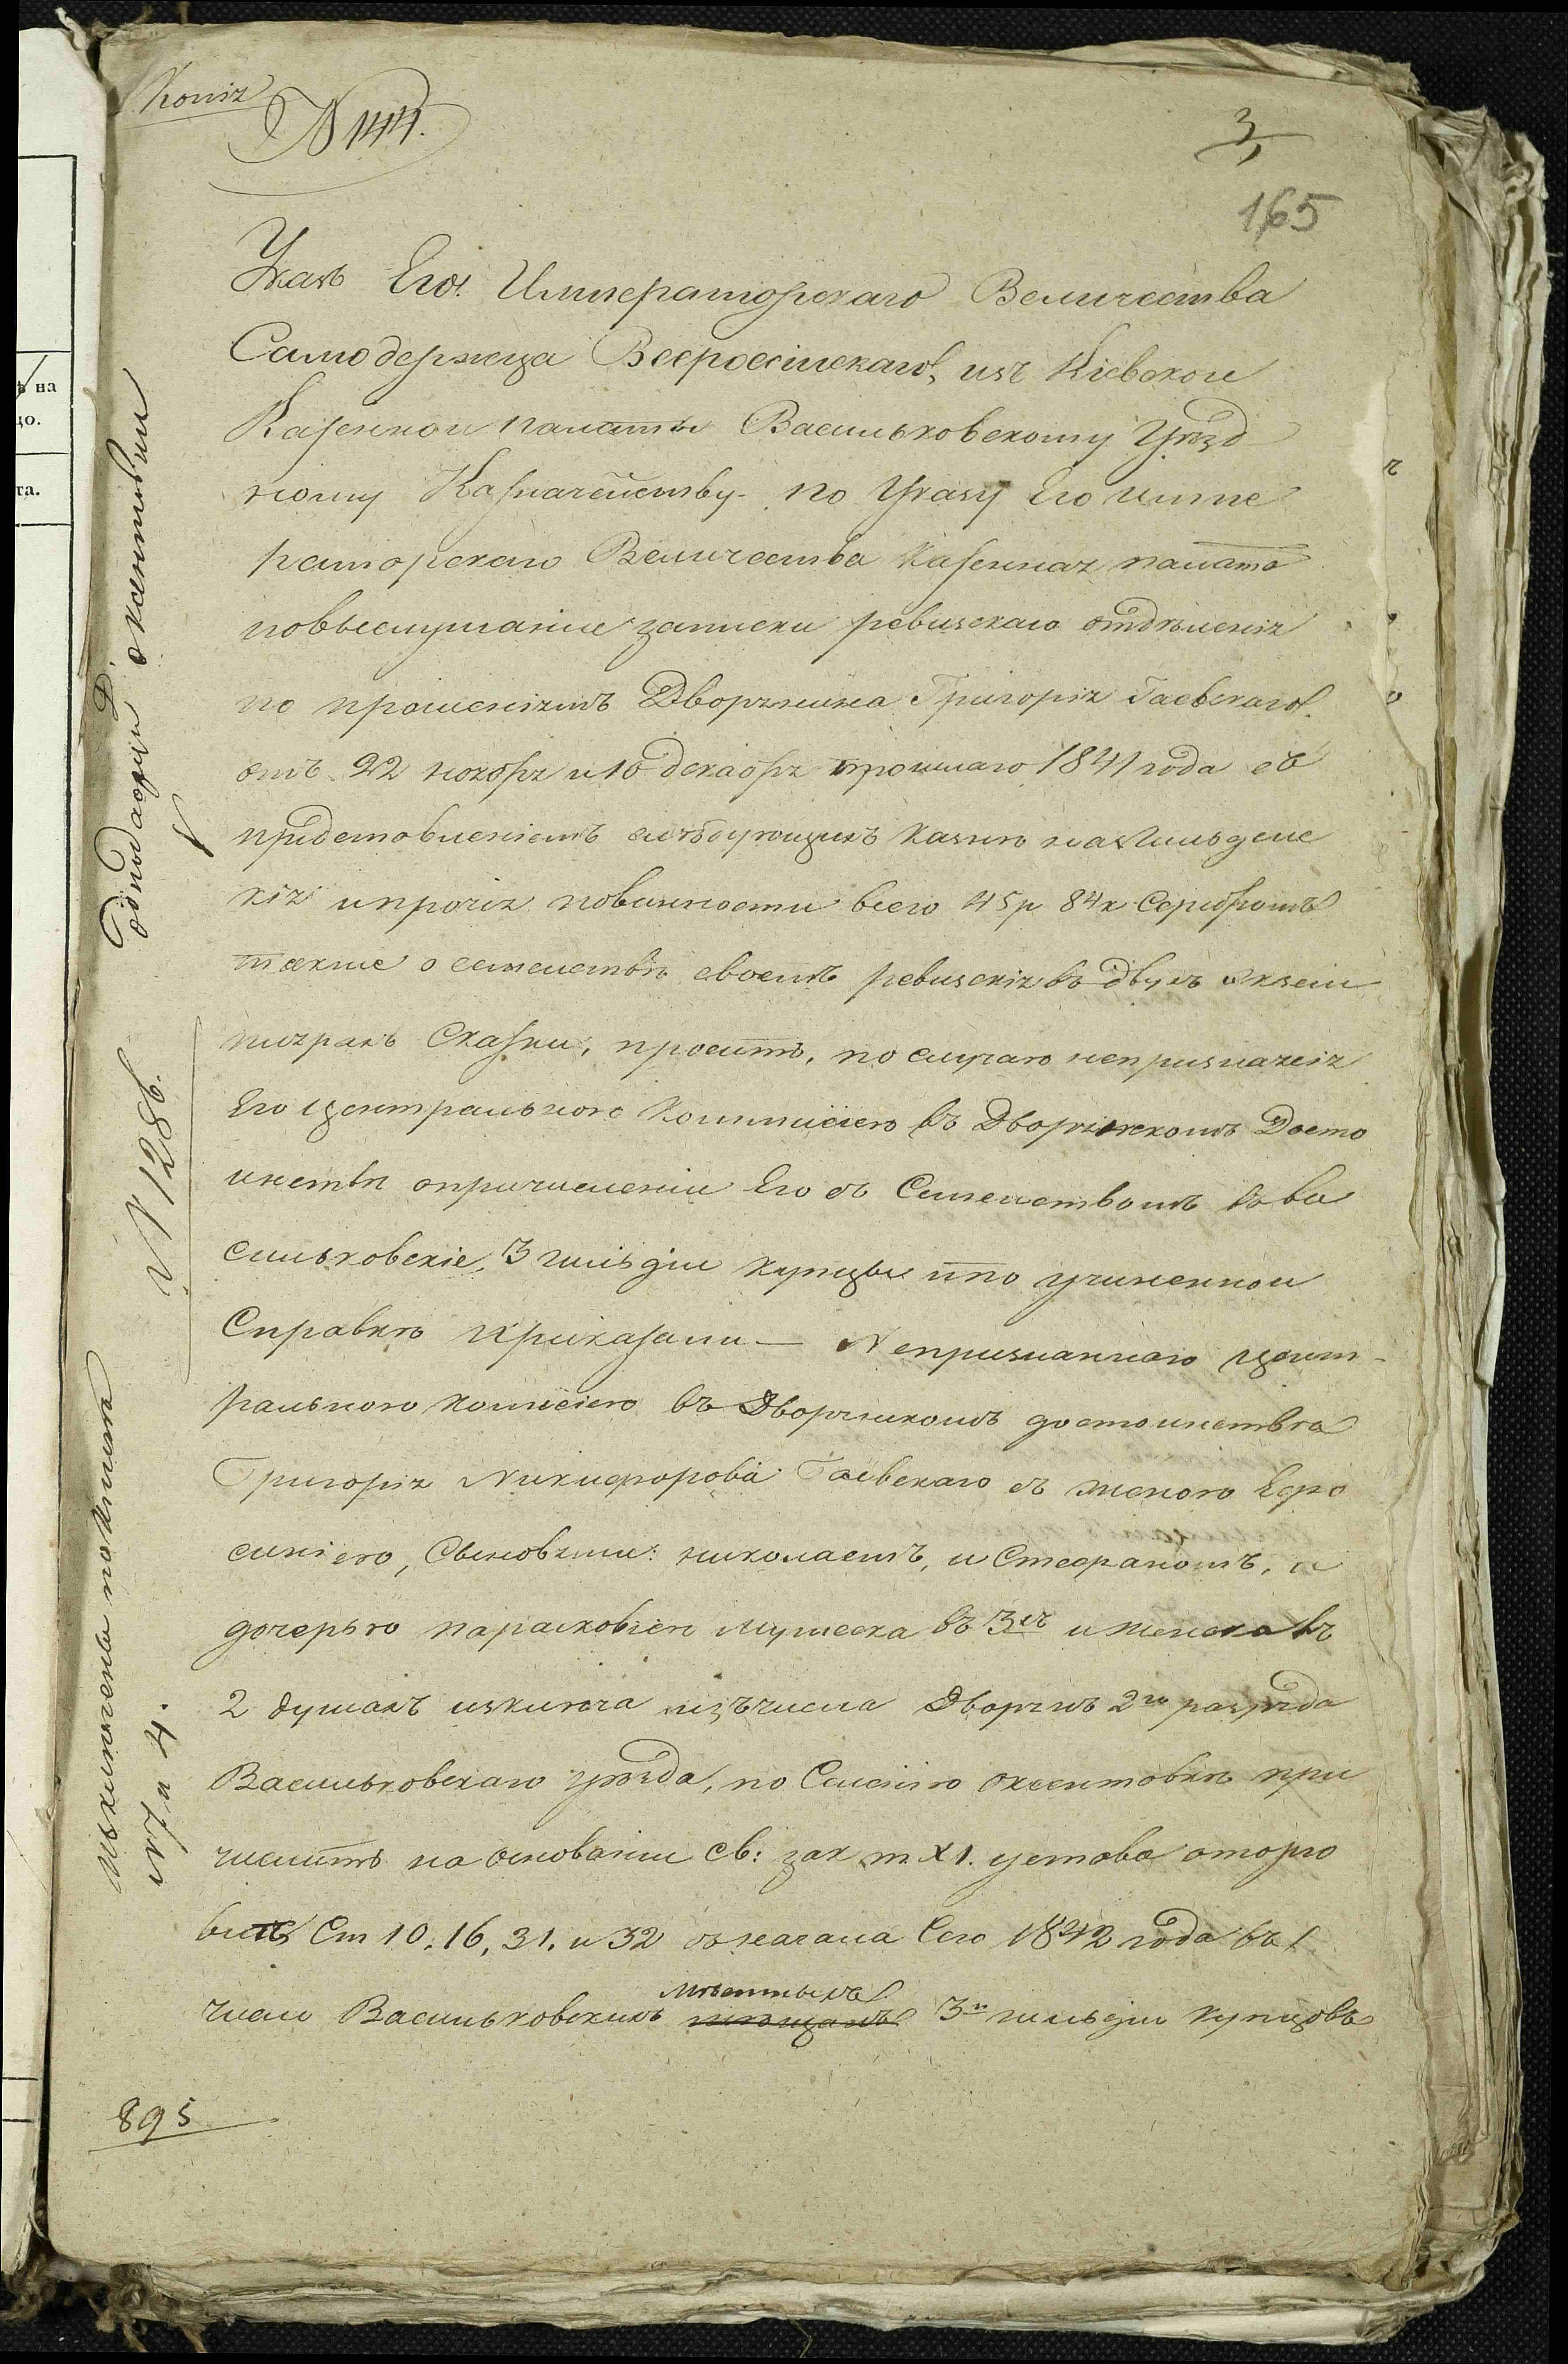 Копія
N 144.
3
165
Указъ Его Императорскаго Величества
Самодержца Всеросійскаго, изъ Кіевской
Казенной палаты Васильковскому Уѣзд
ному Казначейству. по Указу Его импе
раторскаго Величества Казенная палата
повыслушаніи записки ревизскаго отдѣленія
по прошеніямъ Дворянина Григорія Гаевскаго
отъ 22 ноября и 10 декабря прошлаго 1841 года съ
предстовленіемъ слѣдующихъ казнѣ на гильдей
кія ипрочія повинности всего 45р 84к Серебромъ
также о семействѣ своемъ ревизскія въ двухъ экзем
пляряхъ Сказки, проситъ, по случаю непризнанія
Его центральною Коммисіею въ Дворянскомъ Досто
инствѣ опричисленіи Его съ Семействомъ въ Ва
сильковскіе, 3 гильдіи купцы ипо учиненной
Справкѣ Приказали — Непризнаннаго цент-
ральною комисіею въ Дворянскомъ достоинства
Григорія Никифорова Гаевскаго съ женою Ефро
синіею, Сыновьями: николаемъ, и Стефаномъ, и
дочерью парасковіею мужеска въ 3хъ и женска въ
2 душахъ исключа изъчисла Дворянъ 2го разряда
Васильковскаго уѣзда, по Селенію оксентовкѣ при
числить на основаніи св: зак т. XI. устава оторго
влѣ Ст 10, 16, 31, и 32 съначала Сего 1842 года въ
число Васильковскихъ 3й гильдіи купцовъ
мѣстныхъ
N 1286.
исключены по книгѣ
N 7 и 4.
895